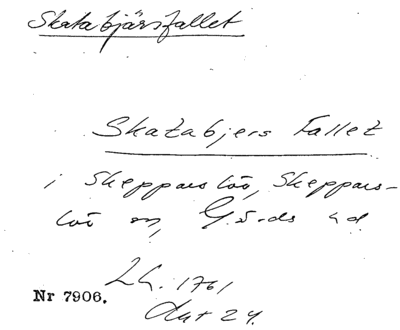 Skatabjärsfallet
Skatabjers Fallet
i Skepparslöv, Skeppars-
löv sn, G-ds hd.
Lh. 1761
Nr 7906.
Akt 24.